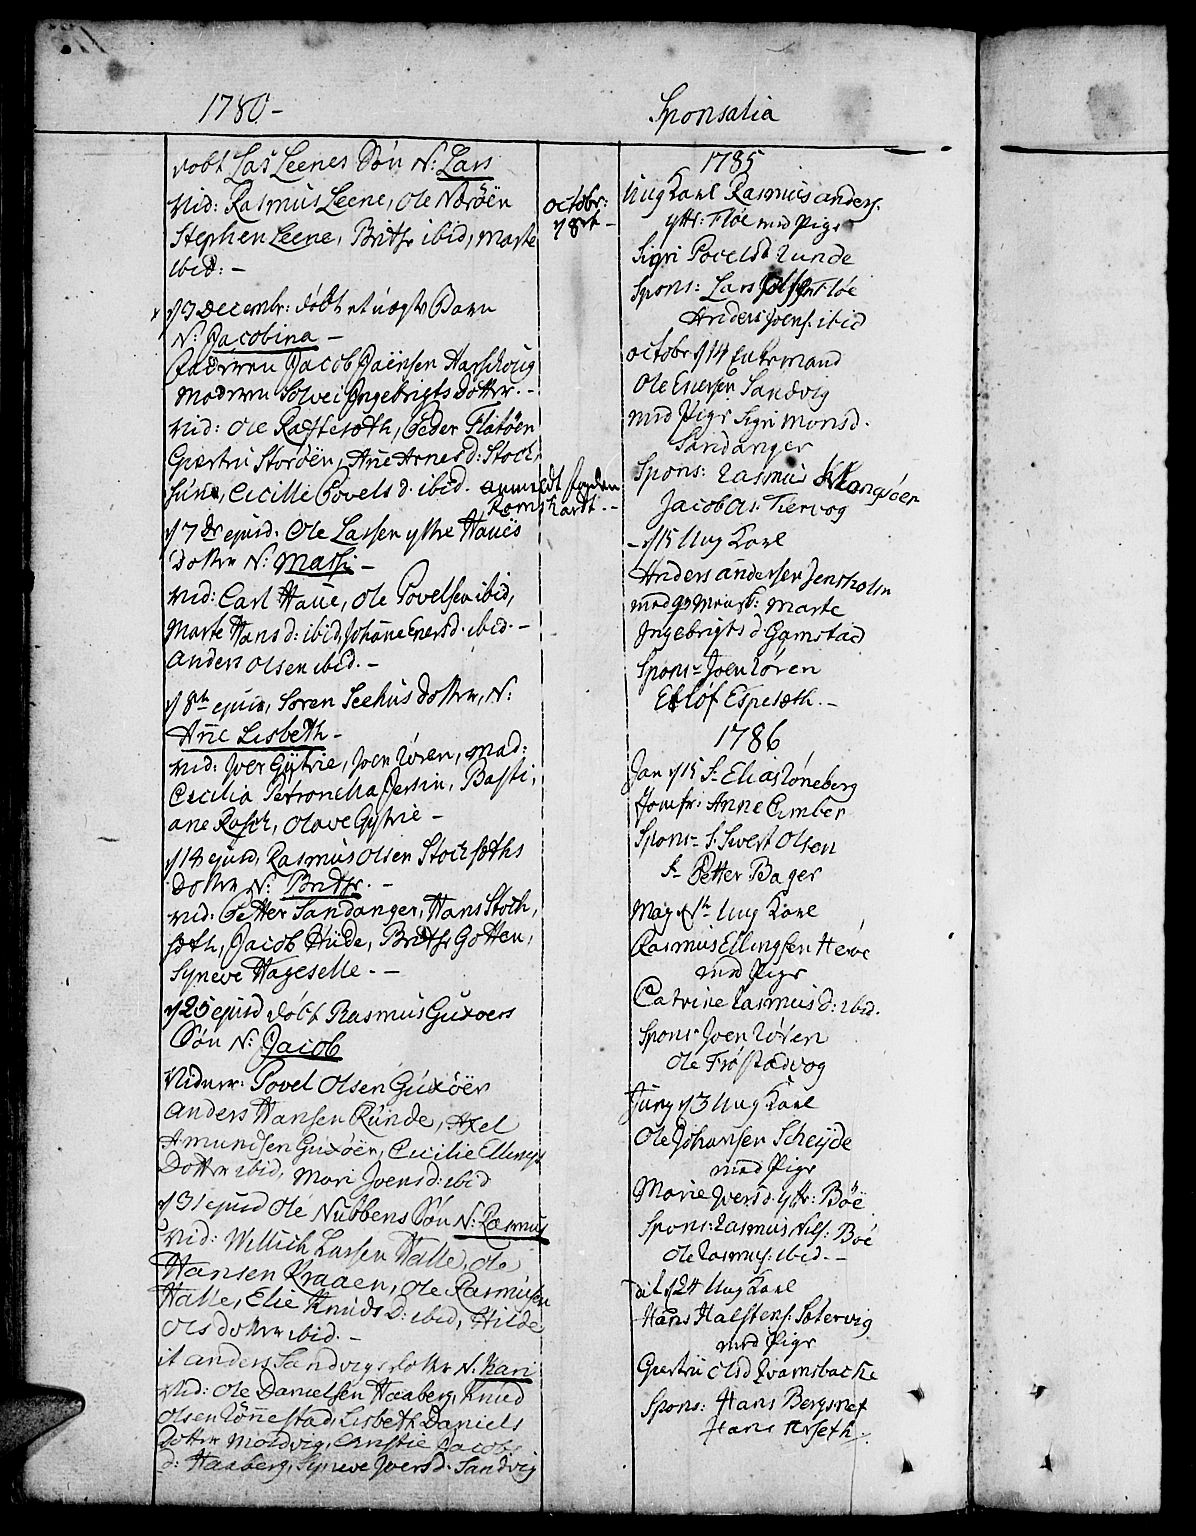 1780-
døbt Las Leenes Søn N: Lars
Vid: Rasmus Leene, Ole Nørøen
Stephen Leene, Birthe ibid, Marte
ibid: -
d 3 Decembr: døbt et uægte Barn
N: Jacobina -
Faderen Jacob Joensen
Moderen Solvei Ingebrigts Dotter. -
Vid: Ole Peder Flatøen
Giertru Storøen, Ane Arnes d: Stoch
Cecilie Povels d. ibid. anmeldt
d 7de ejusd. Ole Larsen ytre Haues
Dotter N: Massi -
Vid: Carl Haue, Ole Povelsen ibid,
Marte Hans d: ibid, Johane Enersd. ibid. -
Anders Olsen ibid. -
d 8de ejusd, Soren Seehus Dotter, N:
Ane Lisbeth -
Vid: Iver Gytrie, Joen Løren, Mad:
Cecilia Petronella Jersin, Basti,
ane Rasch, Olave Gytrie -
d 14 ejusd, Rasmus Olsen Stochsæths
Dotter N: Birthe. -
Vid. Petter Sandanger, Hans Stoch,
sæth, Jacob Hiide, Birthe Gotten,
Syneve Hageselle. -
d 25 ejusd døbt Rasmus Guxøers
Søn N: Jacob
Vidner: Povel Olsen Guxøer
Anders Hansen Runde, Axel
Amundsen Guxøer, Cecilie Ellings
Dotter ibid, Mari Joensd: ibid
d 31 ejusd Ole Nubbens Søn N: Rasmus
Vid: Willich Larsen Halle, Ole
Hansen Kraaen, Ole Rasmusen
Halle, Elie Knuds D: ibid, Hilde
Ols dotter ibid. -
it Anders Sandvigs dotter N: Kari
Vid: Ole Danielsen Haaberg, Knud
Olsen Rønnestad, Lisbeth Daniels
Dotter Moldvig, Christie Jacobs
d: Haaberg, Syneve Ivers d. Sandvig
Sponsalia
1785
octobr:
d 8de -
Ung Karl Rasmus Anders.
ytr: Fløe med Pige
Sigri Povelsd Runde
Spons: Lars Fløe
Anders Joens. ibid
octobr d 14 Enkemand
Ole Enersen Sandvig
med Pige Sigri Monsd.
Sandanger
Spons: Rasmus Klangsøer
Jacob As. Tiervog
- d 15 Ung Karl
Anders Andersen Jensholm
med Marte
Ingebrigts d Gamstad
Spons- Joen Løren
Elløf Espesæth. -
1786
Jan d 15 Sr Elias Røneberg
Jomfr: Anne Cumber
Spons- Sr Sivert Olsen
Sr Petter Bager
May d 1te Ung Karl
Rasmus Ellingsen Herøe
med Pige
Catrine Rasmus d: ibid.
Spons- Joen Løren
Ole Frøstadvog
Juny d 3 Ung Karl
Ole Johansen Scheyde
med Pige
Marie Iversd. ytr: Bøe
Spons: Rasmus Nils: Bøe
Ole Rasmus: ibid. -
dit d 24 Ung Karl
Hans Halstens: Sætervig
med Pige
Giertru Olsd Qvamsbacke
Spons: Hans Bergsnef
Hans Arseth.